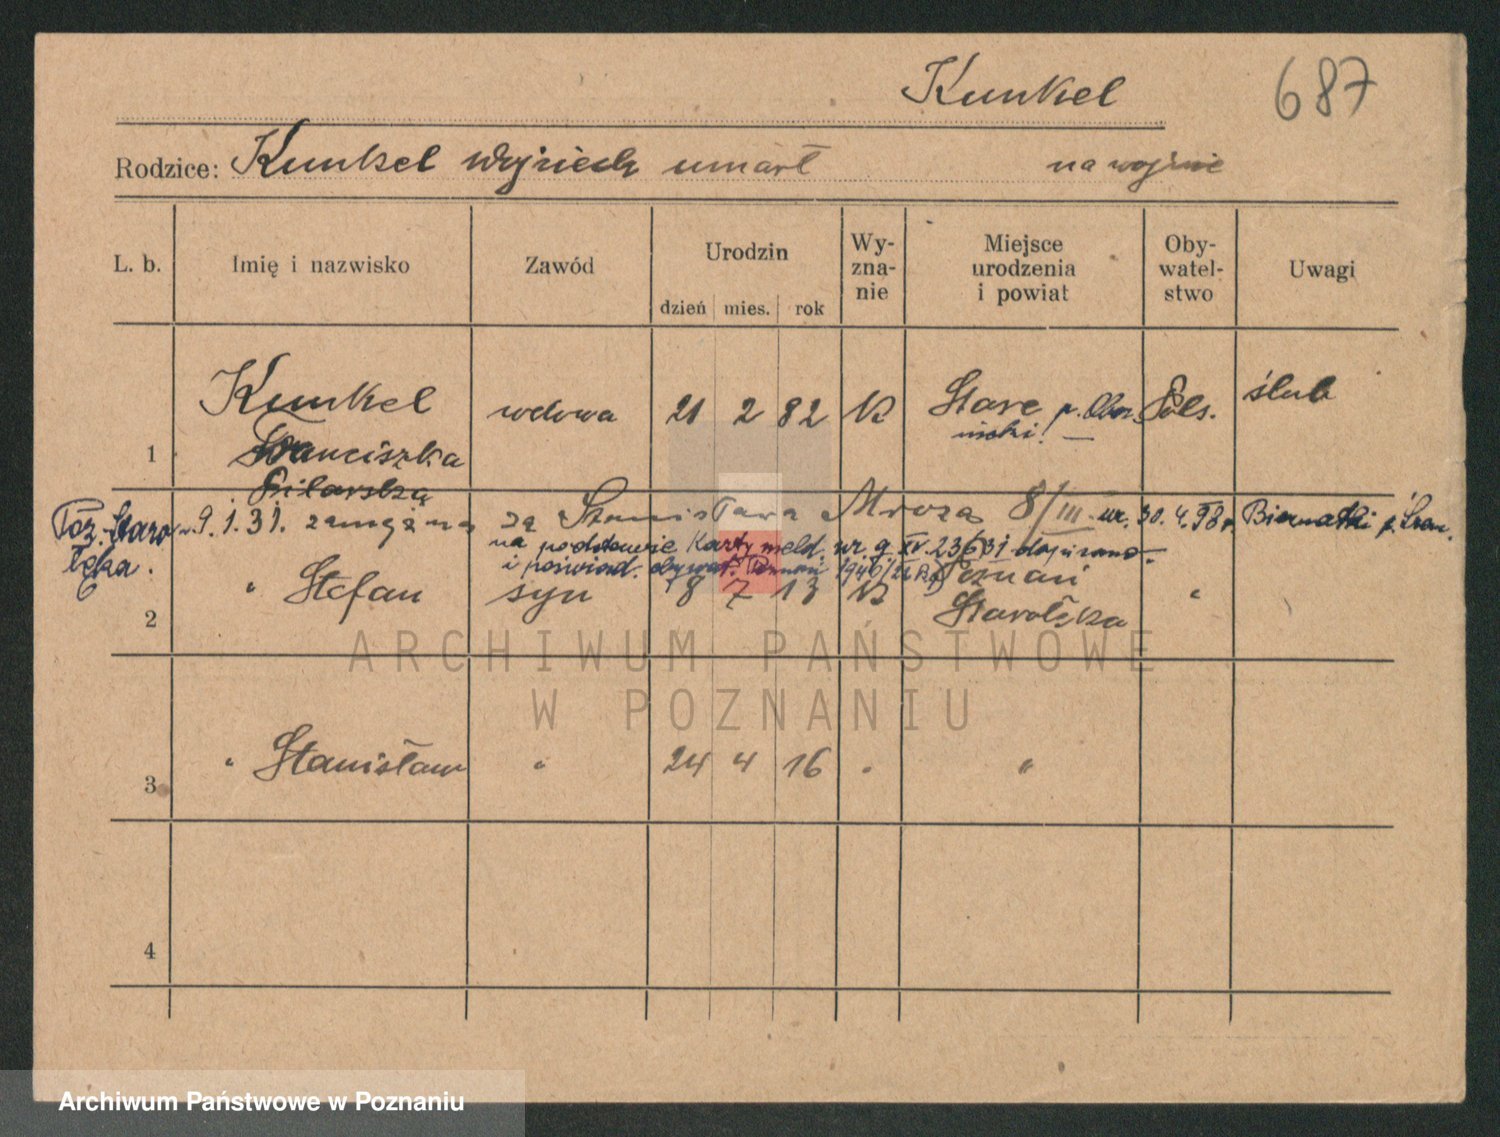 Kunkel 687
Rodzice: Kunkel Wojciech umarł na wojnie
L. b. Imię i nazwisko Zawód Urodzin dzień mies. rok Wy-zna-nie Miejsce urodzenia i powiat Oby-watel-stwo Uwagi
1 Kunkel wdowa 21 2 82 K Stare p. Obor. Pols. ślub
Franciszka
Pilarską
9.1.31. zamężna za Stanisława Mroza 8/III ur. 30.4.98 r. Biernatki p. Śrem.
na podstawie Karty meld. nr. g. XV. 236/31 dopisano
i poświad. obywat. Poznań 1946
2 " Stefan syn 8 7 13 K Poznań "
Starołęka
3 " Stanisław " 24 4 16 " "
4
ARCHIWUM PAŃSTWOWE
W POZNANIU
Archiwum Państwowe w Poznaniu